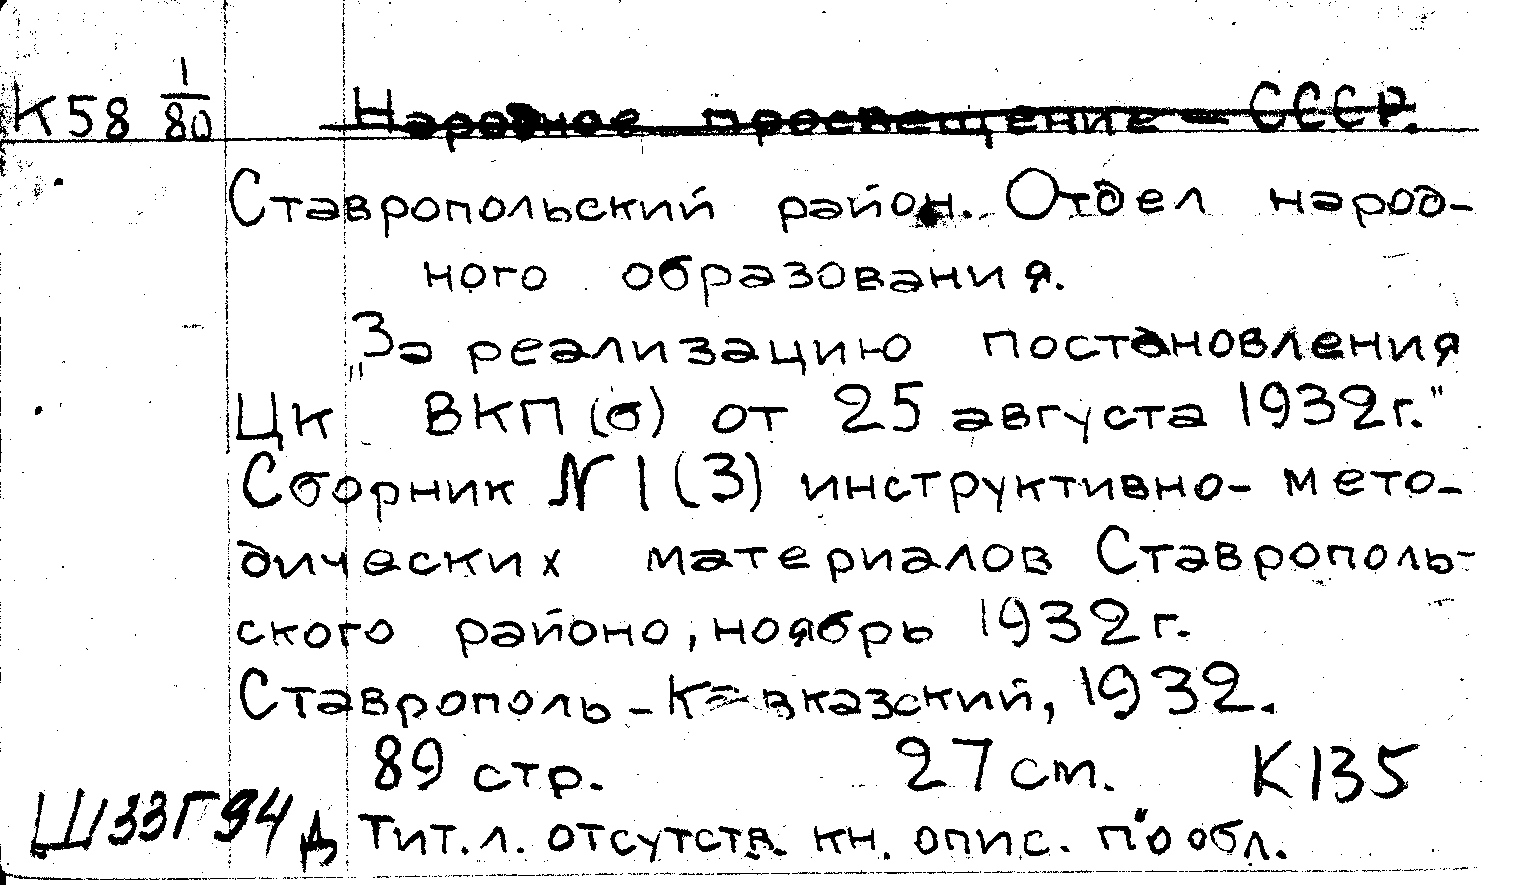 К58 1/80 Народное просвещение - СССР.
Ставропольский район. Отдел народ-
ного образования.
"За реализацию постановления
ЦК ВКП(б) от 25 августа 1932г."
Сборник N 1 (3) инструктивно-мето-
дических материалов Ставрополь-
ского районо, ноябрь 1932г.
Ставрополь-Кавказский, 1932.
89 стр. 27 см. К135
Ш33Г94 Д Тит. л. отсутств. кн. опис. по обл.